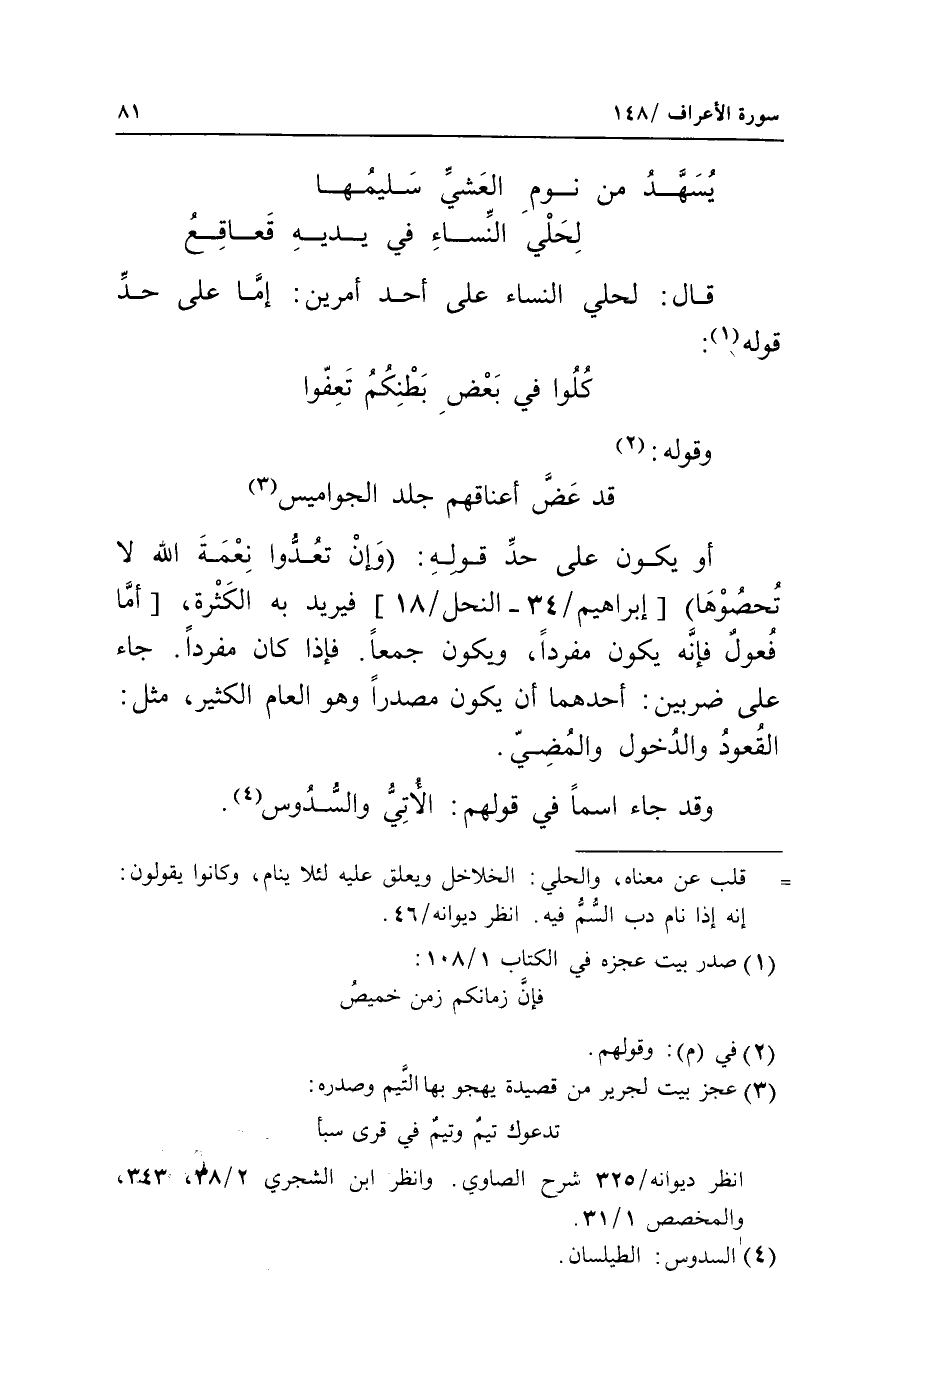 سورة الأعراف /١٤٨ ٨١
يُسَهَّدُ من نومِ العَشيِّ سَليمُها
لِحَلْيِ النِّساءِ في يديهِ قَعاقِعُ
قال: لحلي النساء على أحد أمرين: إمَّا على حدِّ
قوله(١):
كُلُوا في بَعْضِ بَطْنِكُمُ تَعِفّوا
وقوله: (٢)
قد عَضَّ أعناقهم جلد الجواميس(٣)
أو يكون على حدِّ قولِهِ: (وَإنْ تعُدُّوا نِعْمَةَ الله لا
تُحصُوْهَا) [إبراهيم/٣٤ ـ النحل/١٨] فيريد به الكَثْرة، [أمَّا
فُعولٌ فإنَّه يكون مفرداً، ويكون جمعاً. فإذا كان مفرداً. جاء
على ضربين: أحدهما أن يكون مصدراً وهو العام الكثير، مثل:
القُعودُ والدُخول والمُضِيّ.
وقد جاء اسماً في قولهم: الأُتِيُّ والسُّدُوس(٤).
= قلب عن معناه، والحلي: الخلاخل ويعلق عليه لئلا ينام، وكانوا يقولون:
إنه إذا نام دب السُّمُّ فيه. انظر ديوانه/٤٦.
(١) صدر بيت عجزه في الكتاب ١٠٨/١:
فإنَّ زمانكم زمن خميصُ
(٢) في (م): وقولهم.
(٣) عجز بيت لجرير من قصيدة يهجو بها التَّيم وصدره:
تدعوك تيمٌ وتيمٌ في قرى سبأ
انظر ديوانه/٣٢٥ شرح الصاوي. وانظر ابن الشجري ٣٨/٢، ٣٤٣،
والمخصص ٣١/١.
(٤) السدوس: الطيلسان.